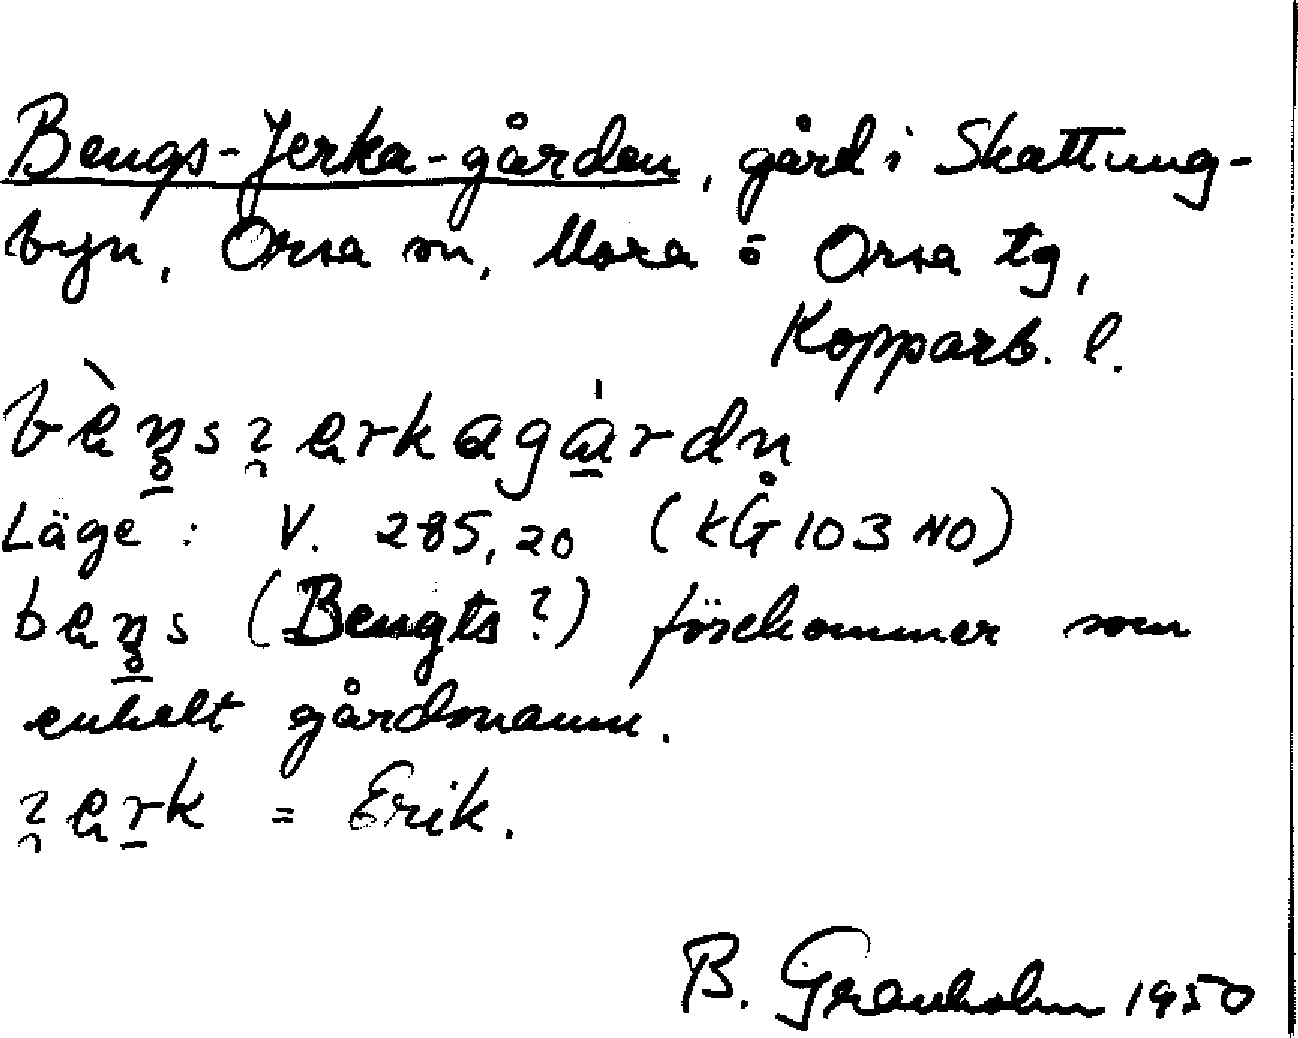 Bengs-Jerka-gården, gård i Skattung-
byn, Orsa sn, Mora o Orsa tg,
Kopparb. l.
Läge: V. 285,20 (kG̊ 103 NO)
(Bengts?) förekommer som
enkelt gårdsnamn.
= Erik.
B. Granholm 1950